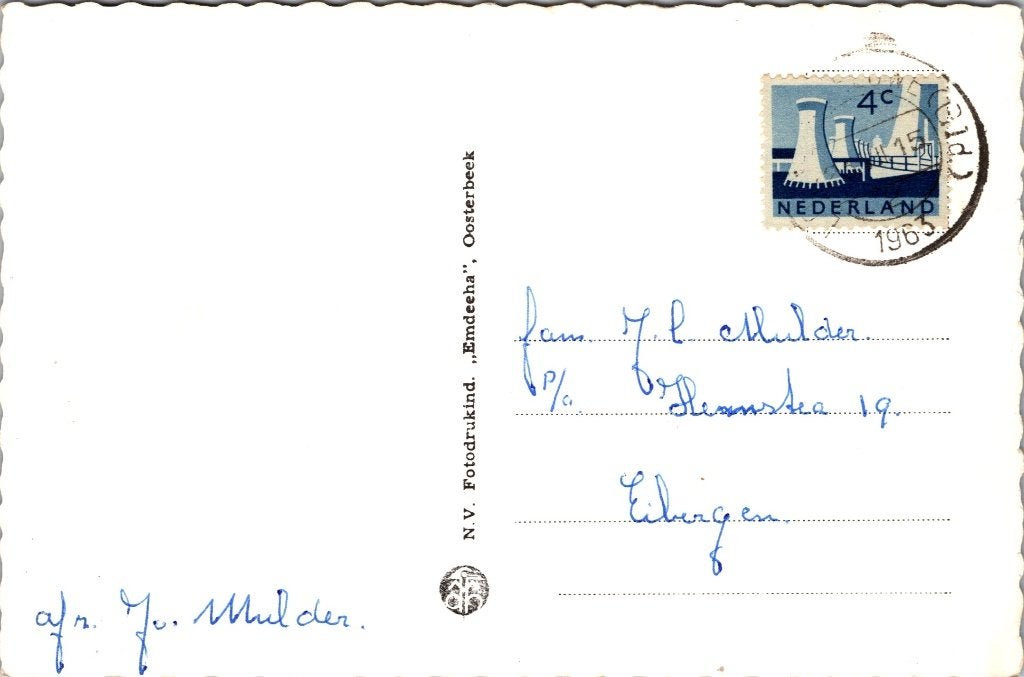 4c
NEDERLAND
15
1963
fam. J. l Mulder.
p/a. 19.
Eibergen.
N.V. Fotodrukind. „Emdeeha”, Oosterbeek
afz. J. v. Mulder.